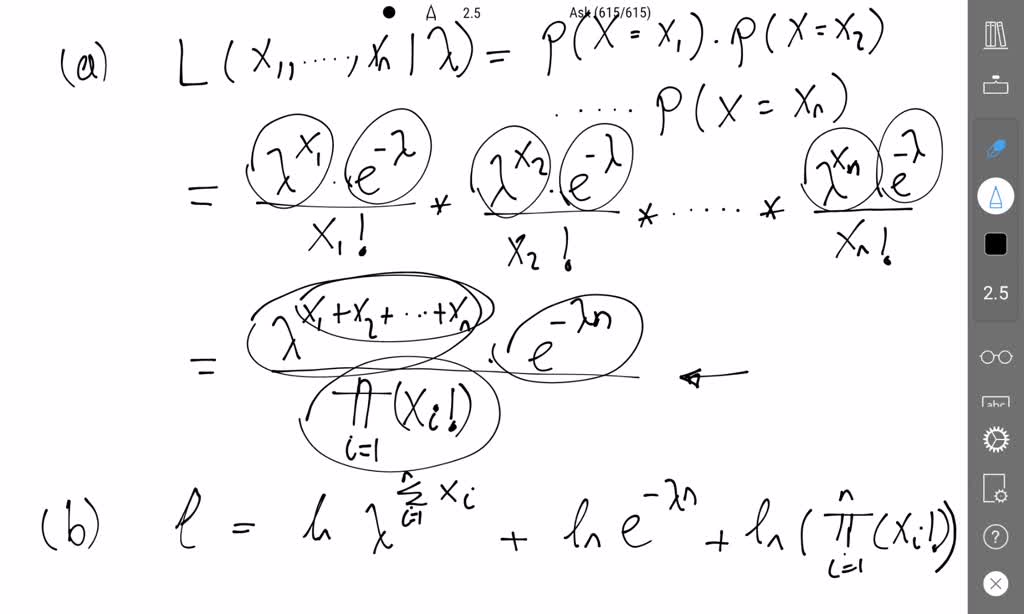 2.5 Ask (615/615)
(a) L(x₁, ....., xₙ | λ) = P(X = x₁) · P(X = x₂)
· .... P(X = xₙ)
= λ^x₁ · e^-λ / x₁! * λ^x₂ · e^-λ / x₂! * ...... * λ^xₙ e^-λ / xₙ!
= λ^(x₁+x₂+...+xₙ) · e^-λn / ∏ i=1 (xᵢ!) ←
(b) l = ln λ^(n Σ i=1 xᵢ) + ln e^-λn + ln (n ∏ i=1 (xᵢ!))
2.5
abc
?